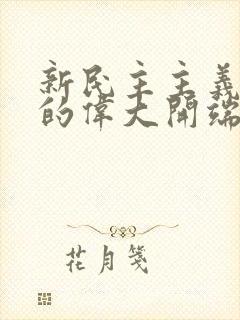 新民主主義
的偉大開端
花月箋